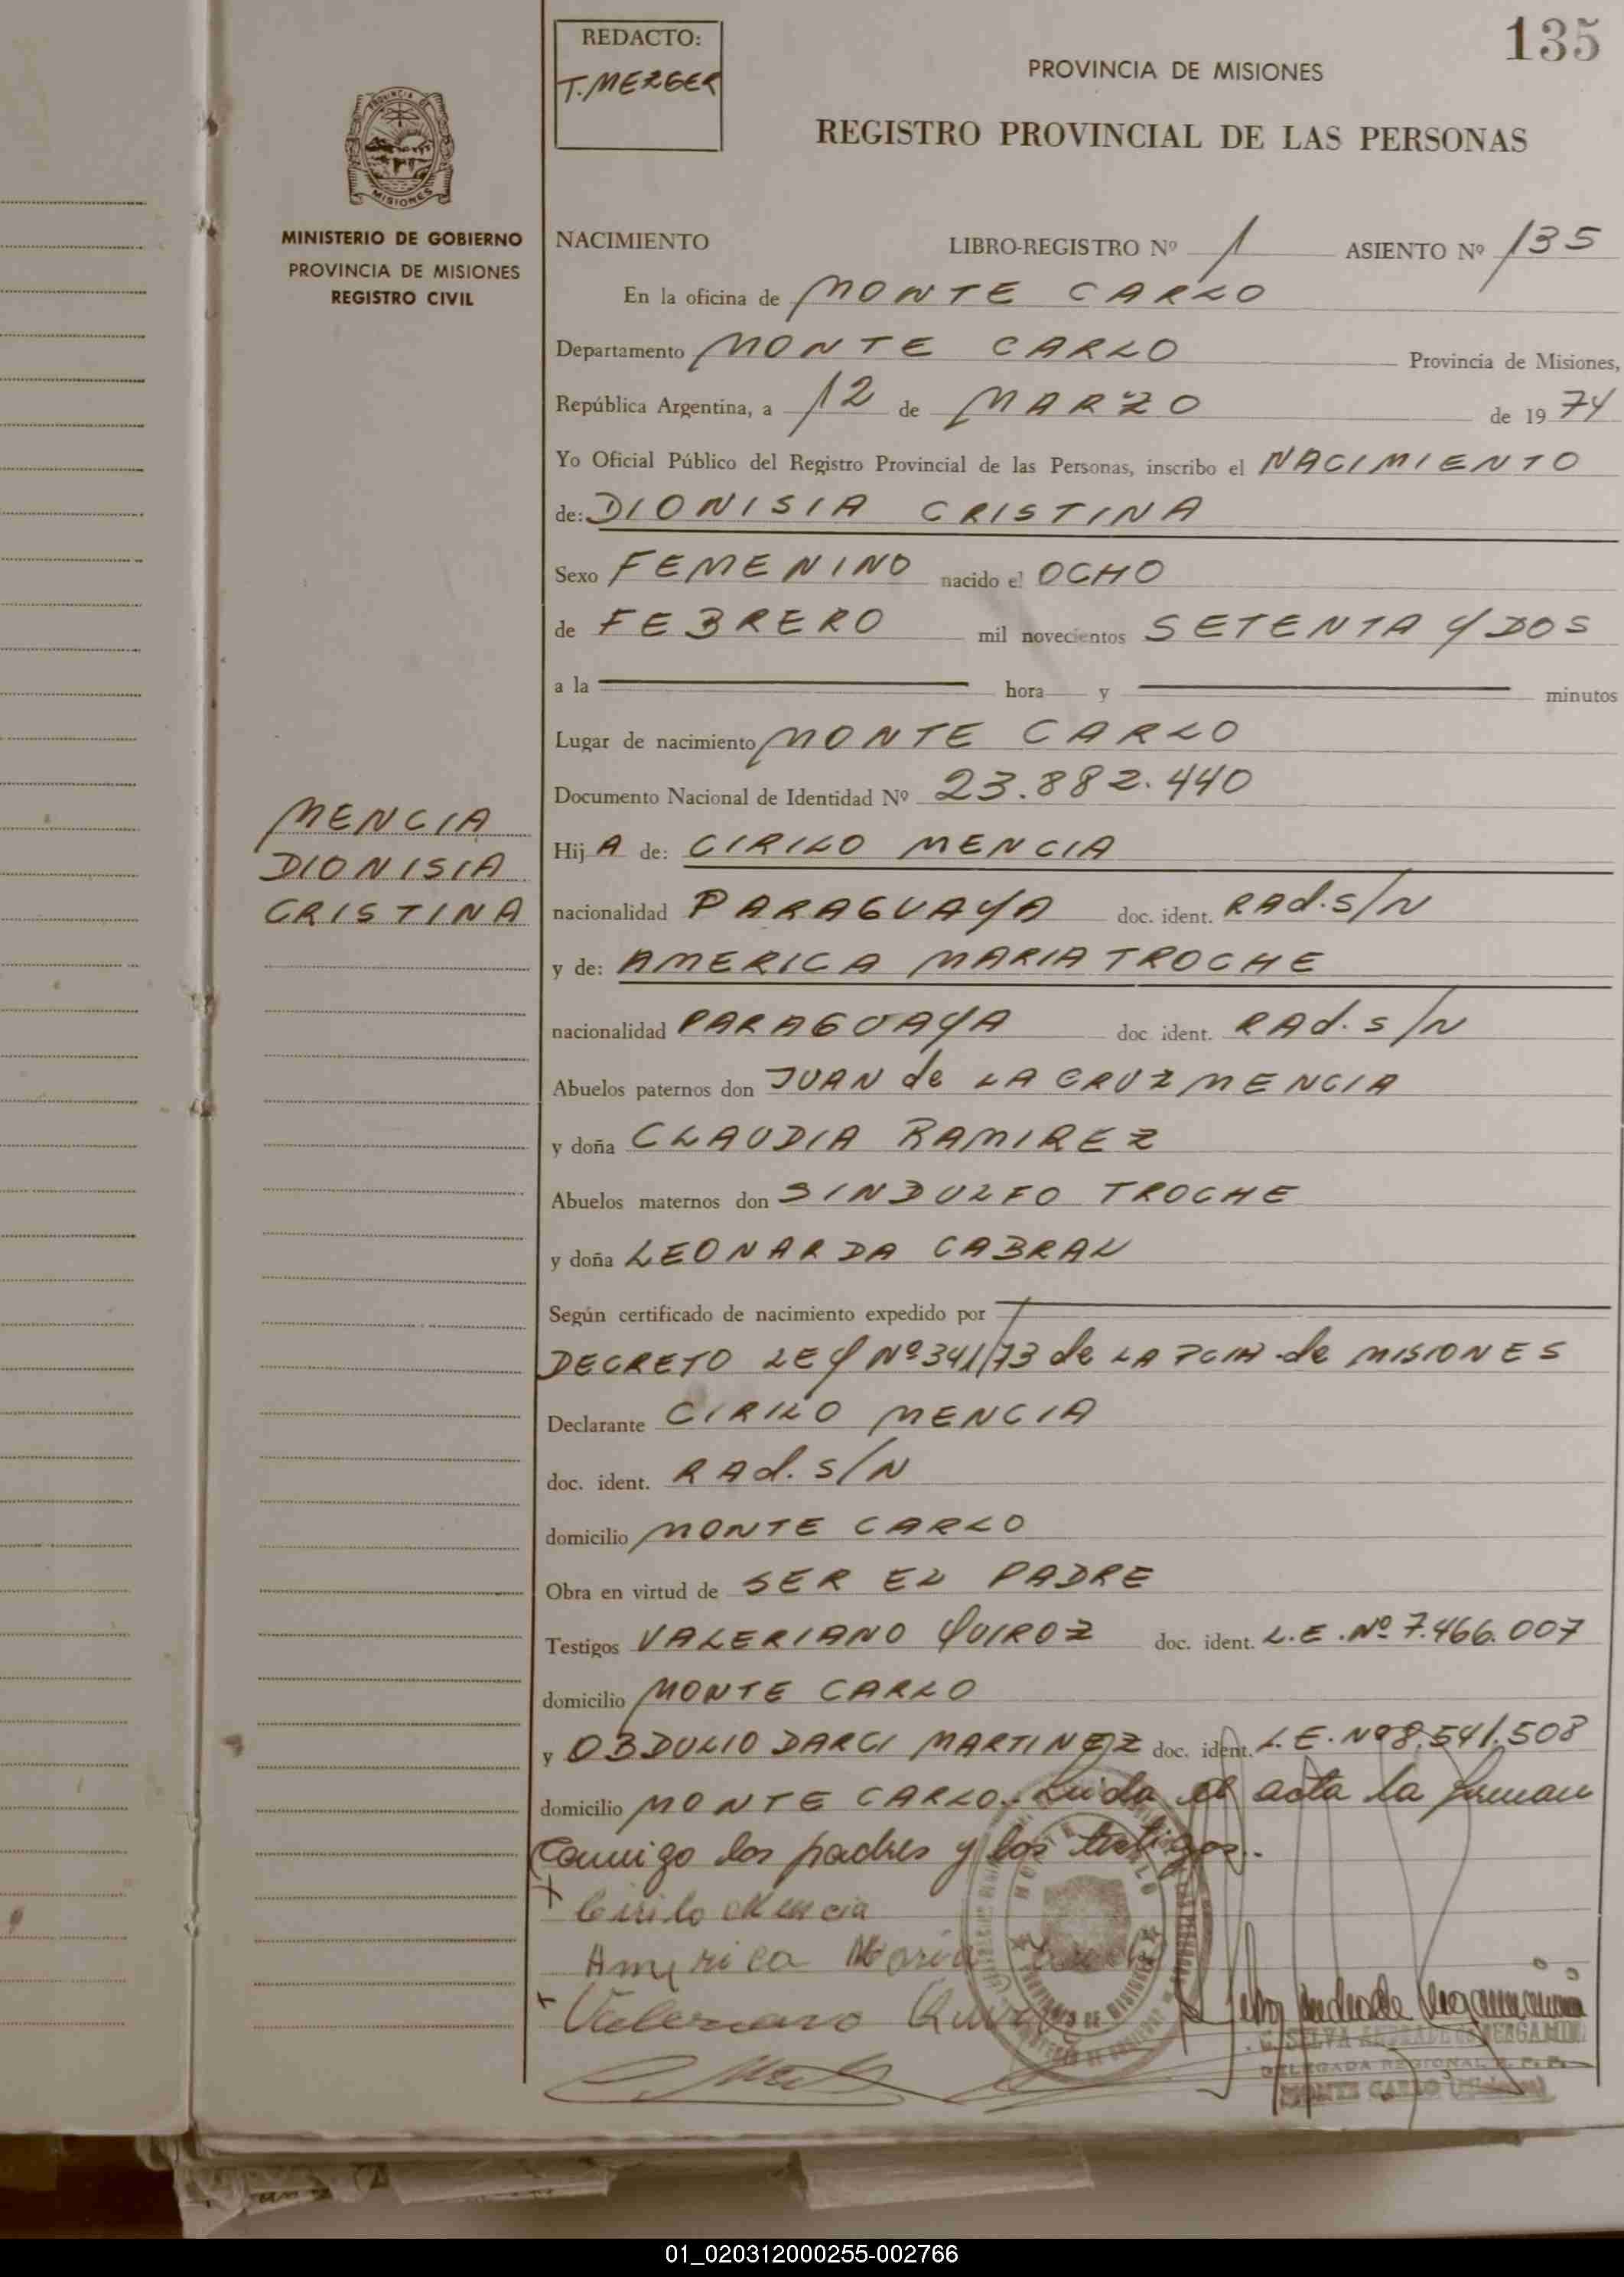 135
REDACTO:
T. MEZGER
PROVINCIA DE MISIONES
REGISTRO PROVINCIAL DE LAS PERSONAS
MISIONES
MINISTERIO DE GOBIERNO
PROVINCIA DE MISIONES
REGISTRO CIVIL
NACIMIENTO LIBRO-REGISTRO Nº 1 ASIENTO Nº 135
En la oficina de MONTE CARLO
Departamento MONTE CARLO Provincia de Misiones,
República Argentina, a 12 de MARZO de 1974
Yo Oficial Público del Registro Provincial de las Personas, inscribo el NACIMIENTO
de: DIONISIA CRISTINA
Sexo FEMENINO nacido el OCHO
de FEBRERO mil novecientos SETENTA Y DOS
a la hora y minutos
Lugar de nacimiento MONTE CARLO
Documento Nacional de Identidad Nº 23.882.440
MENCIA
DIONISIA
CRISTINA
Hij A de: CIRILO MENCIA
nacionalidad PARAGUAYA doc. ident. RAd. S/N
y de: AMERICA MARIA TROCHE
nacionalidad PARAGUAYA doc. ident. RAd. S/N
Abuelos paternos don JUAN de LA CRUZ MENCIA
y doña CLAUDIA RAMIREZ
Abuelos maternos don SINDULFO TROCHE
y doña LEONARDA CABRAL
Según certificado de nacimiento expedido por
DECRETO LEY Nº 341/73 de LA PCIA de MISIONES
Declarante CIRILO MENCIA
doc. ident. RAd. S/N
domicilio MONTE CARLO
Obra en virtud de SER EL PADRE
Testigos VALERIANO QUIROZ doc. ident. L.E. Nº 7.466.007
domicilio MONTE CARLO
y OBDULIO DARCI MARTINEZ doc. ident. L.E. Nº 8.541.508
domicilio MONTE CARLO. Leida el acta la firman
conmigo los padres y los testigos.
Cirilo Mencia
America Maria Troche
Valeriano Quiroz
DELEGADA REGIONAL R. P. P.
MONTE CARLO (Misiones)
01_020312000255-002766